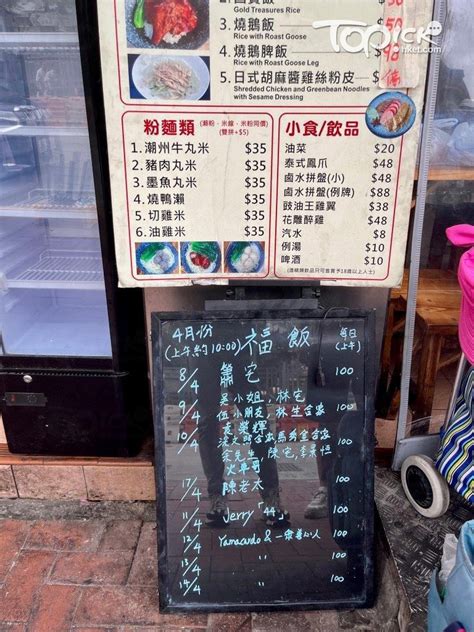 Gold Treasures Rice
3. 燒鵝飯
Rice with Roast Goose
4. 燒鵝脾飯
Rice with Roast Goose Leg
5. 日式胡麻醬雞絲粉皮 $
Shredded Chicken and Greenbean Noodles
with Sesame Dressing
TOPick
hket.com
粉麵類
(雙拼+$5)
1. 潮州牛丸米 $35
2. 豬肉丸米 $35
3. 墨魚丸米 $35
4. 燒鴨瀨 $35
5. 切雞米 $35
6. 油雞米 $35
小食/飲品
油菜 $20
泰式鳳爪 $48
鹵水拼盤(小) $48
鹵水拼盤(例牌) $88
豉油王雞翼 $38
花雕醉雞 $48
汽水 $8
例湯 $10
啤酒 $10
4月份 福飯 每日
(上午約10:00) (上午)
8/4 蕭宅 100
9/4 吳小姐, 林宅 100
伍小朋友, 林生合家
10/4 袁燮輝 100
余先生, 陳宅,
火車哥
17/4 陳老太 100
11/4 Jerry「44」 100
12/4 100
13/4 〃 100
14/4 〃 100